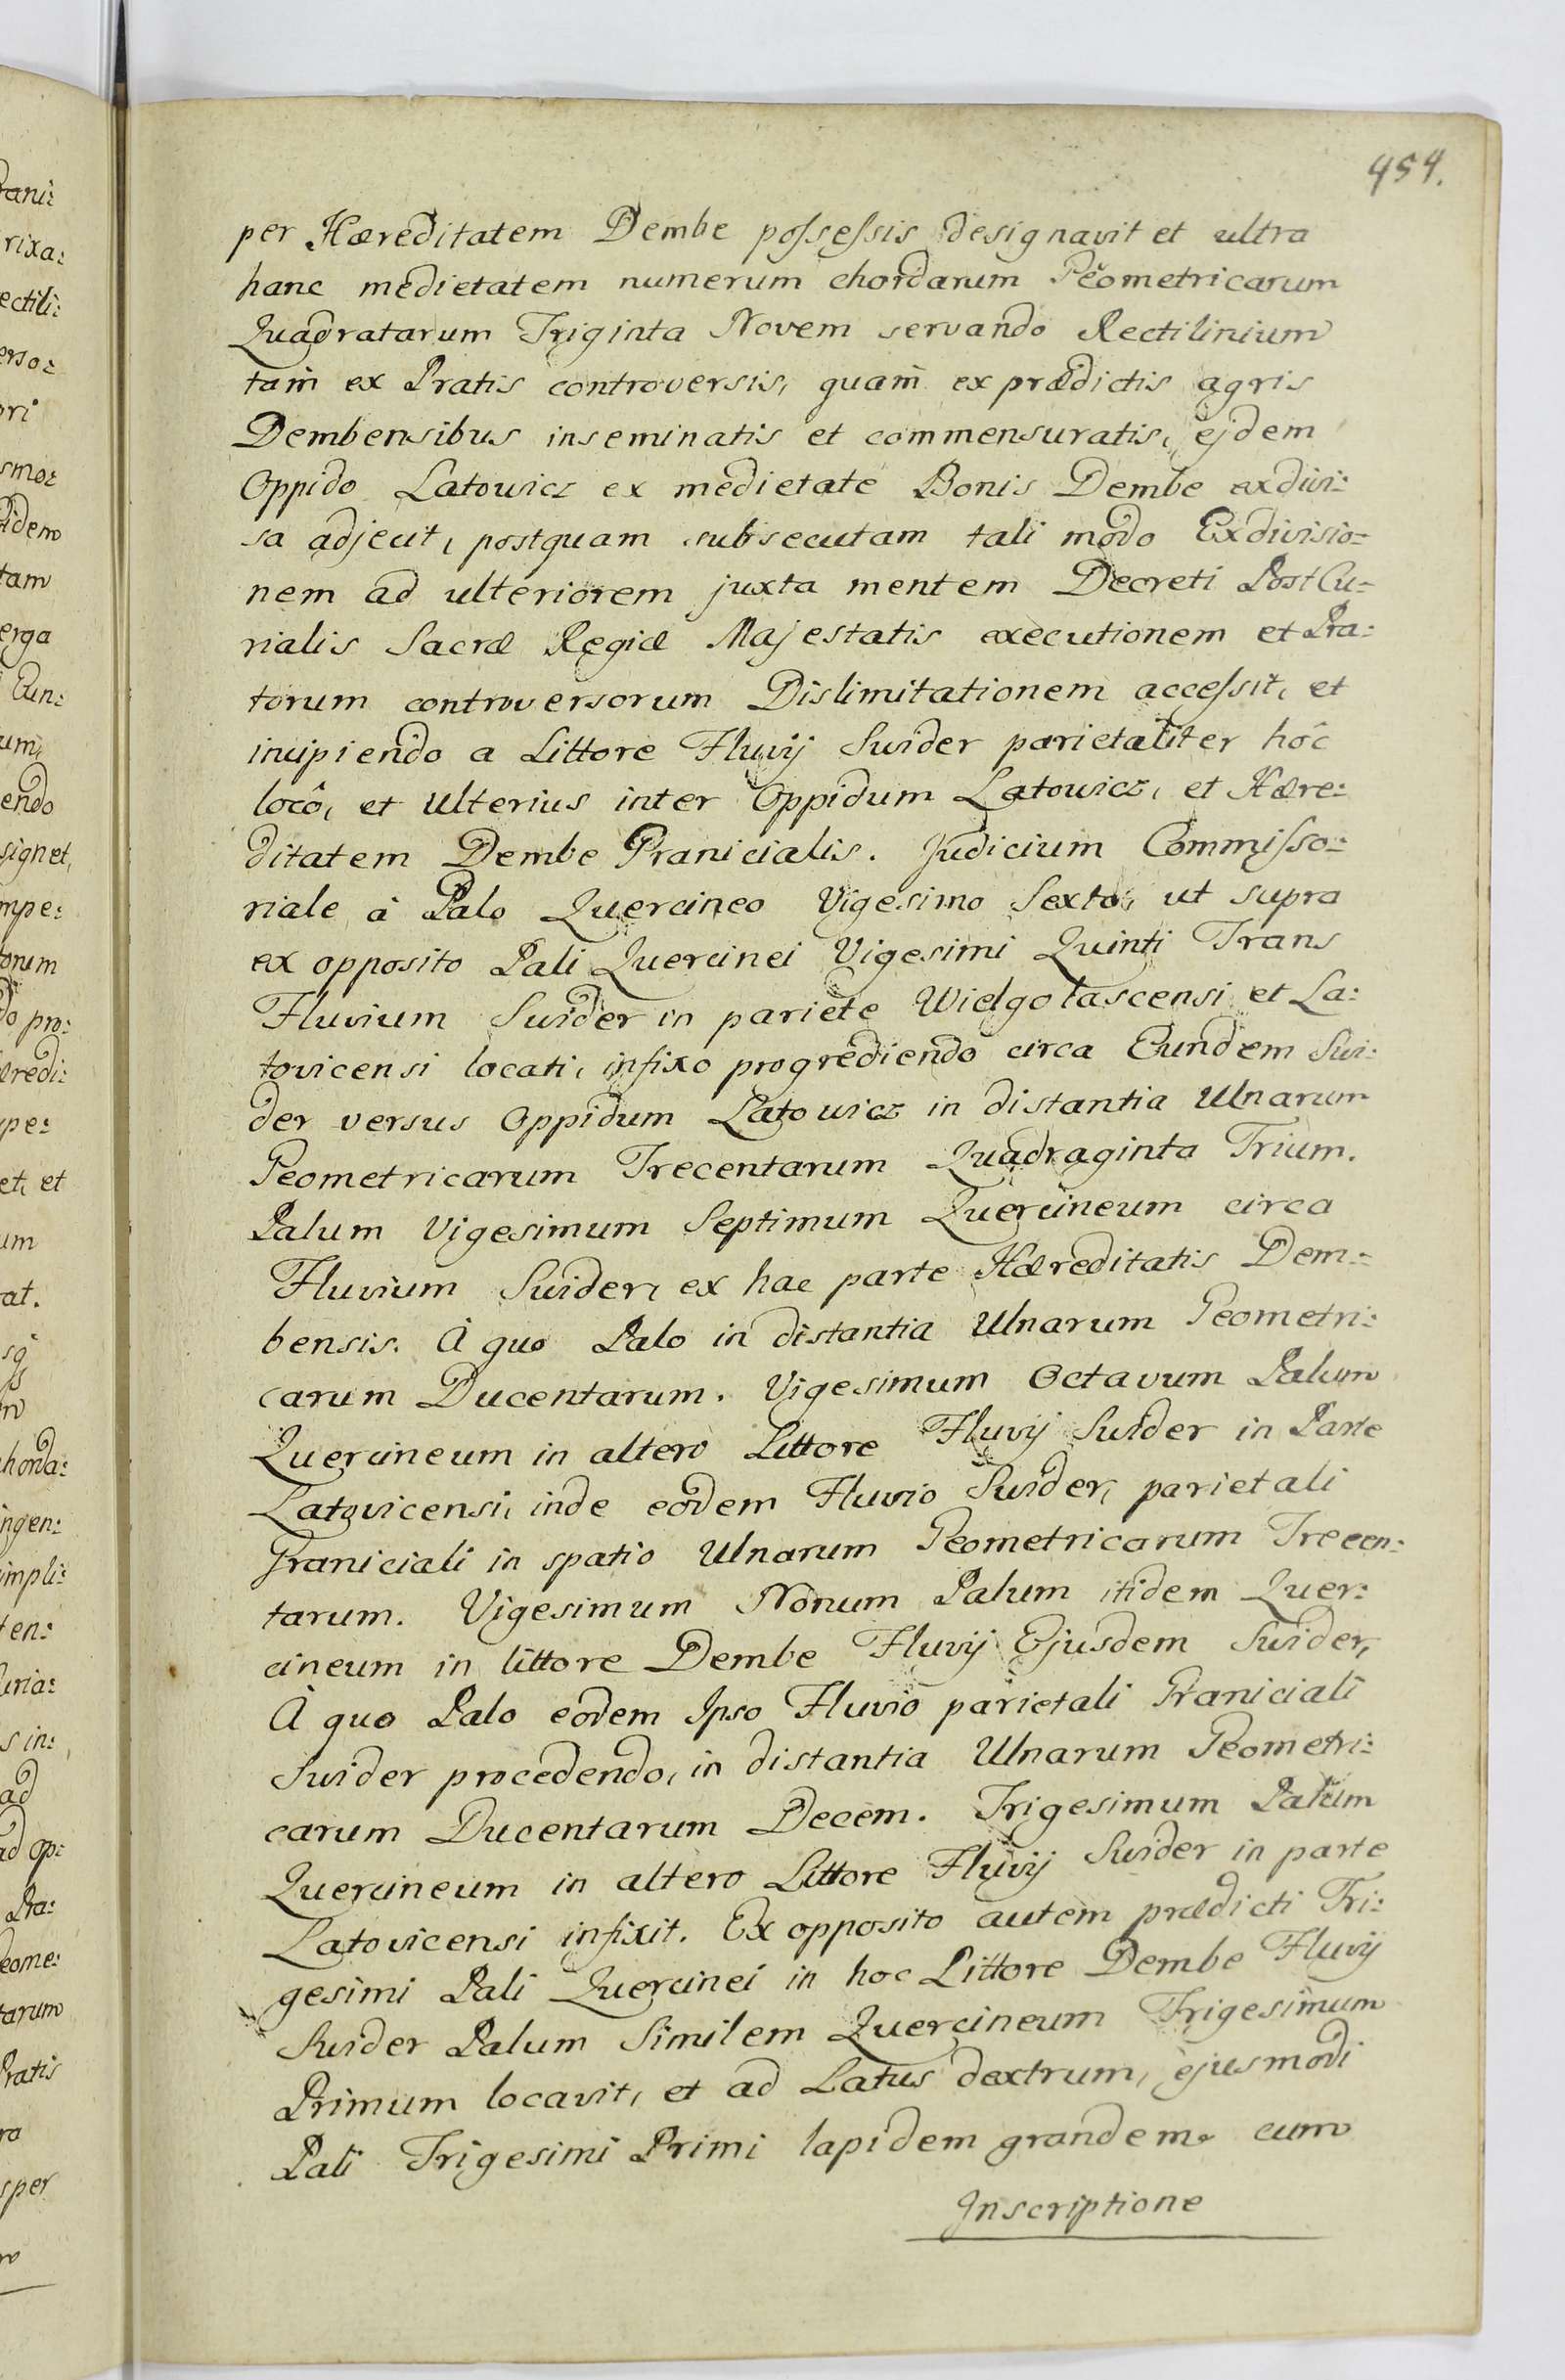 454.
per Hæreditatem Dembe possessis designavit et ultra
hanc medietatem numerum chordarum Geometricarum
Quadratarum Triginta Novem servando Rectilinium
tam ex Pratis controversis, quam ex prædictis agris
Dembensibus inseminatis et commensuratis, ejdem
Oppido Latowicz ex medietate Bonis Dembe exdivi:
sa adjecit, postquam subsecutam tali modo Exdivisio:
nem ad ulteriorem juxta mentem Decreti Post Cu:
rialis Sacræ Regiæ Majestatis executionem et Pra:
torum controversorum Dislimitationem accessit, et
incipiendo a Littore Fluvij Swider parietaliter hôc
locô, et Ulterius inter Oppidum Latowicz, et Hære:
ditatem Dembe Granicialis. Judicium Commisso:
riale à Palo Quercineo Vigesimo Sexto, ut supra
ex opposito Pali Quercinei Vigesimi Quinti Trans
Fluvium Swider in pariete Wielgolascensi et La:
tovicensi locati, infixo progrediendo circa Eundem Swi:
der versus Oppidum Latowicz in distantia Ulnarum
Geometricarum Trecentarum Quadraginta Trium.
Palum Vigesimum Septimum Quercineum circa
Fluvium Swider, ex hac parte Hæreditatis Dem:
bensis. À quo Palo in distantia Ulnarum Geometri:
carum Ducentarum. Vigesimum Octavum Palum
Quercineum in altero Littore Fluvij Swider in Parte
Latovicensi, inde eodem Fluvio Swider, parietali
Graniciali in spatio Ulnarum Geometricarum Trecen:
tarum. Vigesimum Nonum Palum itidem Quer:
cineum in littore Dembe Fluvij Ejusdem Swider,
À quo Palo eodem Ipso Fluvio parietali Graniciali
Swider procedendo, in distantia Ulnarum Geometri:
carum Ducentarum Decem. Trigesimum Palum
Quercineum in altero Littore Fluvij Swider in parte
Latovicensi infixit. Ex opposito autem prædicti Tri:
gesimi Pali Quercinei in hoc Littore Dembe Fluvij
Swider Palum Similem Quercineum Trigesimum
Primum locavit, et ad Latus dextrum, ejusmodi
Pali Trigesimi Primi lapidem grandem cum
Inscriptione